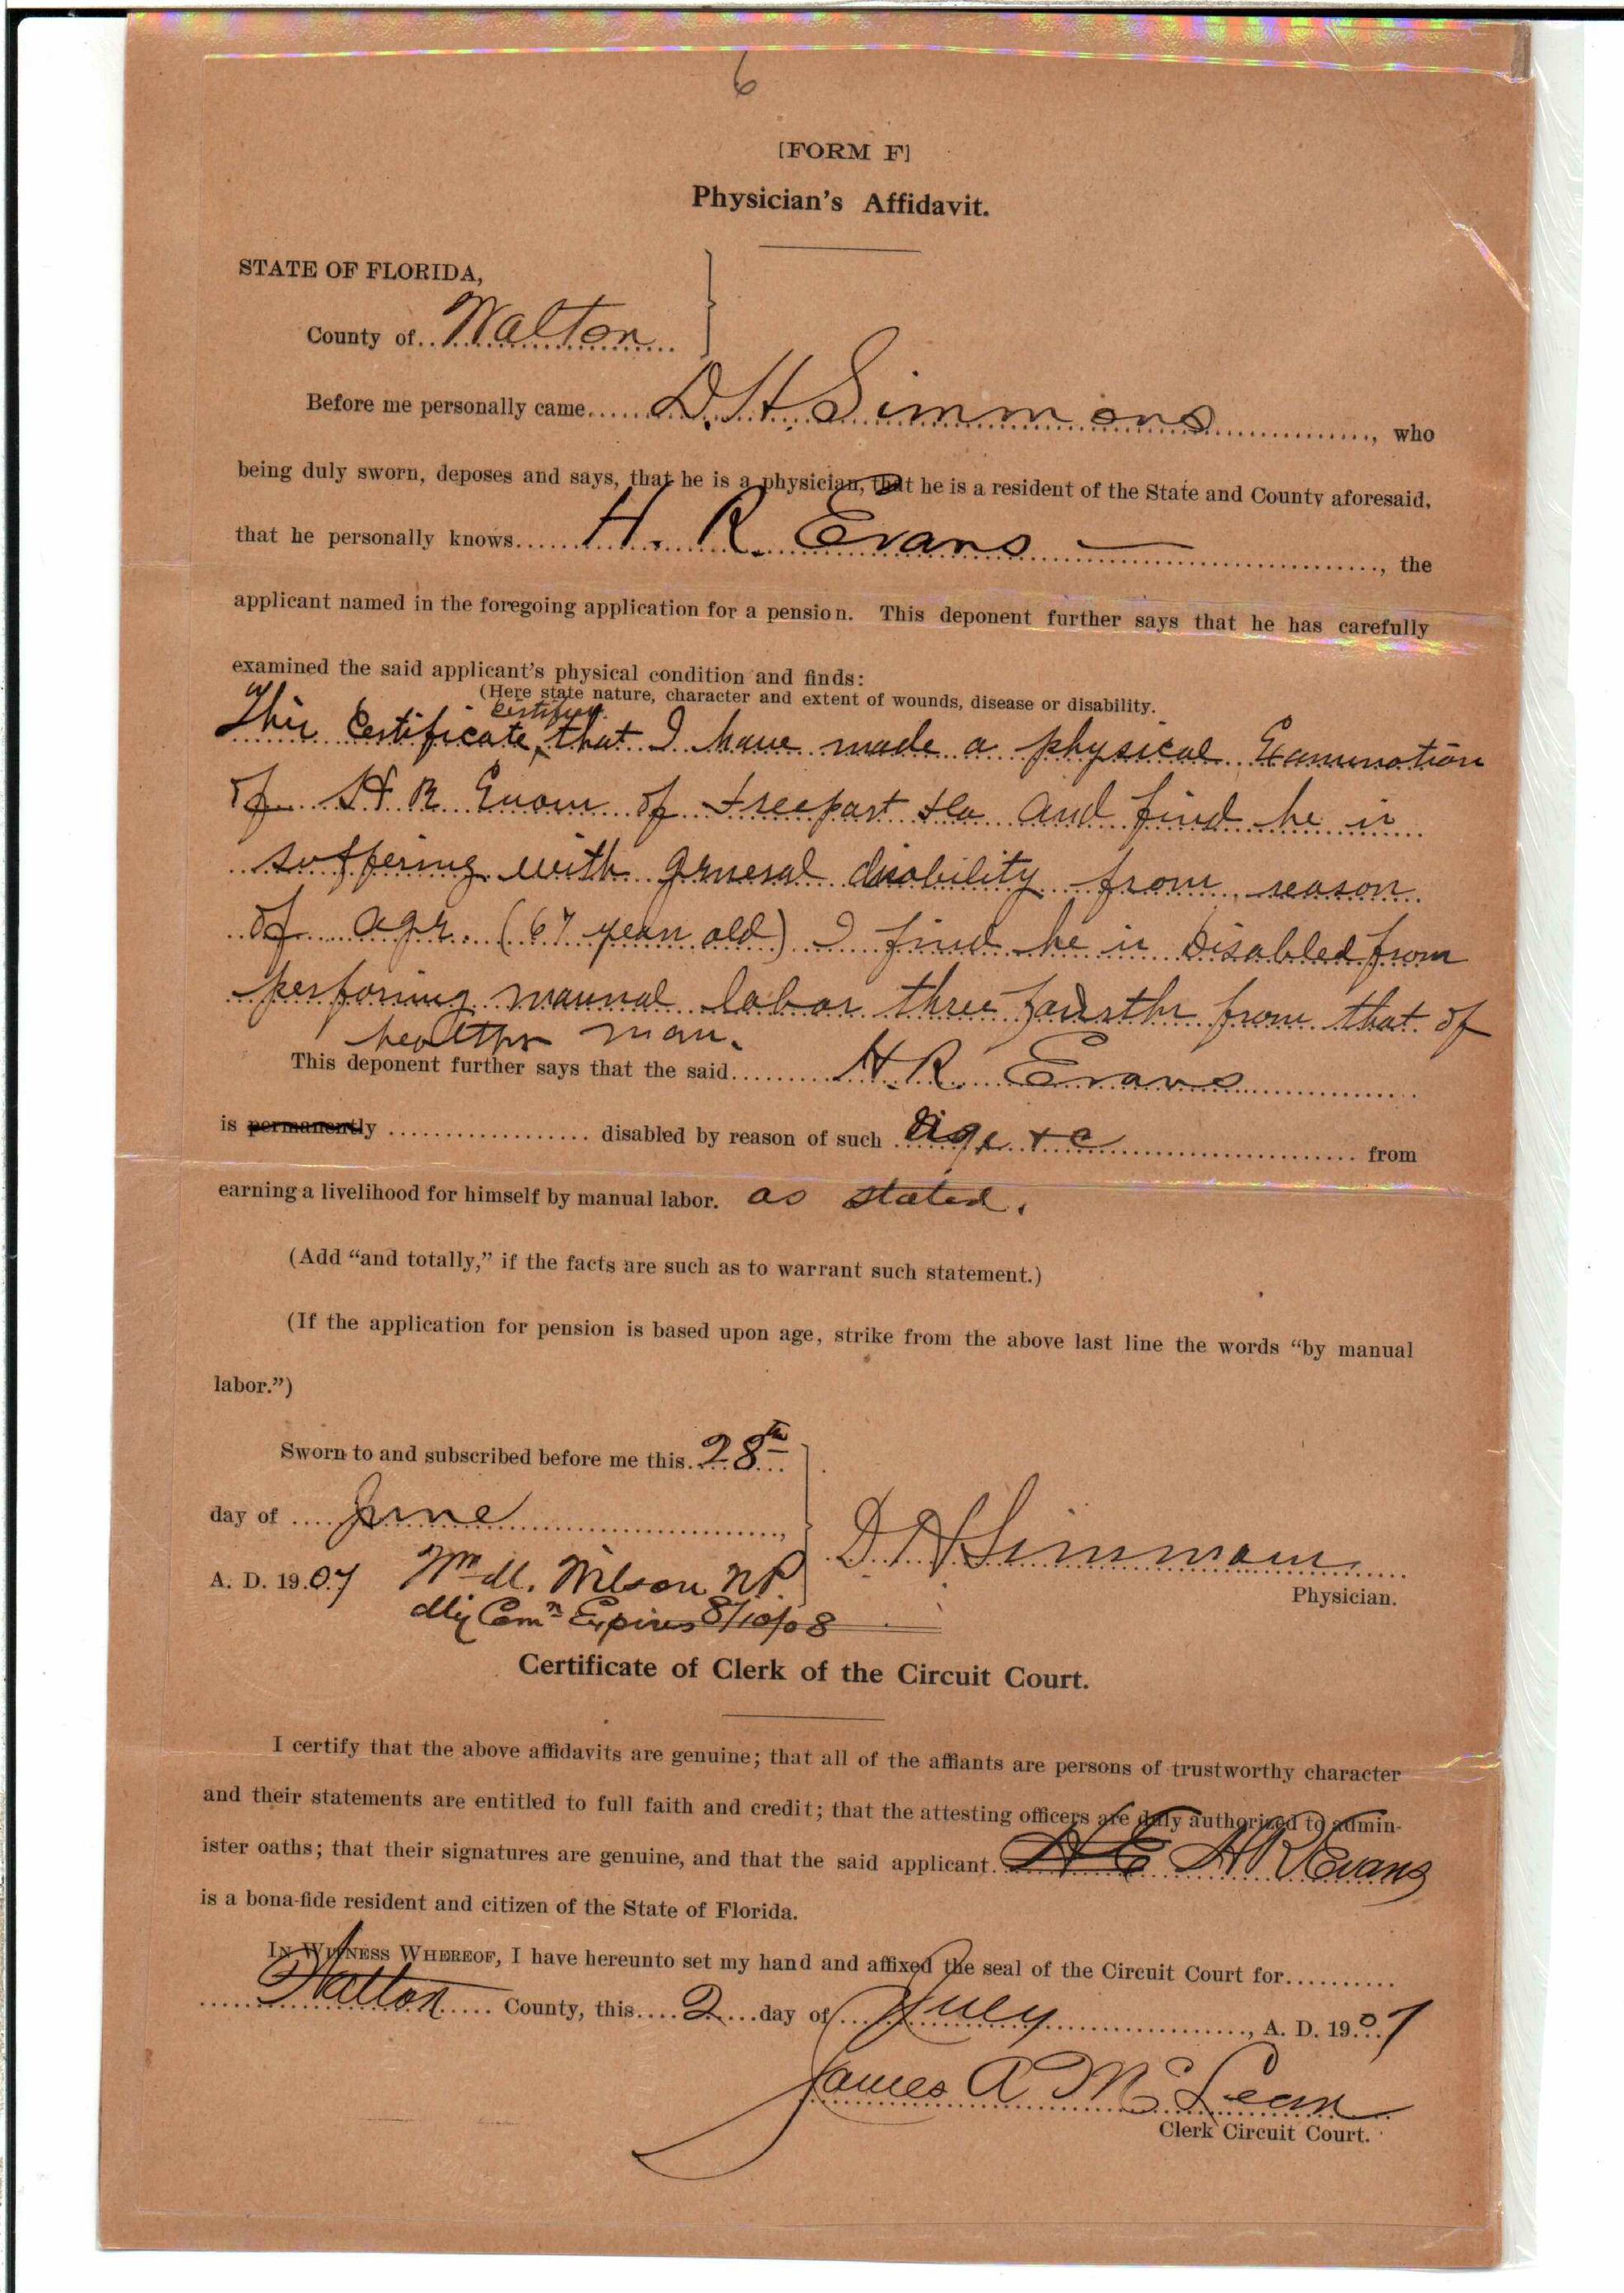 6
[FORM F]
Physician's Affidavit.
STATE OF FLORIDA,
County of Walton
Before me personally came D. H. Simmons, who
being duly sworn, deposes and says, that he is a physician, that he is a resident of the State and County aforesaid,
that he personally knows H. R. Evans, the
applicant named in the foregoing application for a pension. This deponent further says that he has carefully
examined the said applicant's physical condition and finds:
(Here state nature, character and extent of wounds, disease or disability.
certifies
This Certificate, that I have made a physical Examination
of H R Evans of Freeport Fla and find he is
suffering with general disability from reason
of age. (67 years old) I find he is Disabled from
performing manual labor three fourths from that of
healthy man.
This deponent further says that the said H. R. Evans
is permanently disabled by reason of such Age &c from
earning a livelihood for himself by manual labor. as stated.
(Add "and totally," if the facts are such as to warrant such statement.)
(If the application for pension is based upon age, strike from the above last line the words "by manual
labor.")
Sworn to and subscribed before me this 28th
day of June,
D. H Simmons
A. D. 1907 Wm M. Wilson NP
Physician.
My Comn Expires 8/10/08
Certificate of Clerk of the Circuit Court.
I certify that the above affidavits are genuine; that all of the affiants are persons of trustworthy character
and their statements are entitled to full faith and credit; that the attesting officers are duly authorized to admin-
ister oaths; that their signatures are genuine, and that the said applicant H E H R Evans
is a bona-fide resident and citizen of the State of Florida.
IN WITNESS WHEREOF, I have hereunto set my hand and affixed the seal of the Circuit Court for
Walton County, this 2 day of July, A. D. 1907
James A McLean
Clerk Circuit Court.